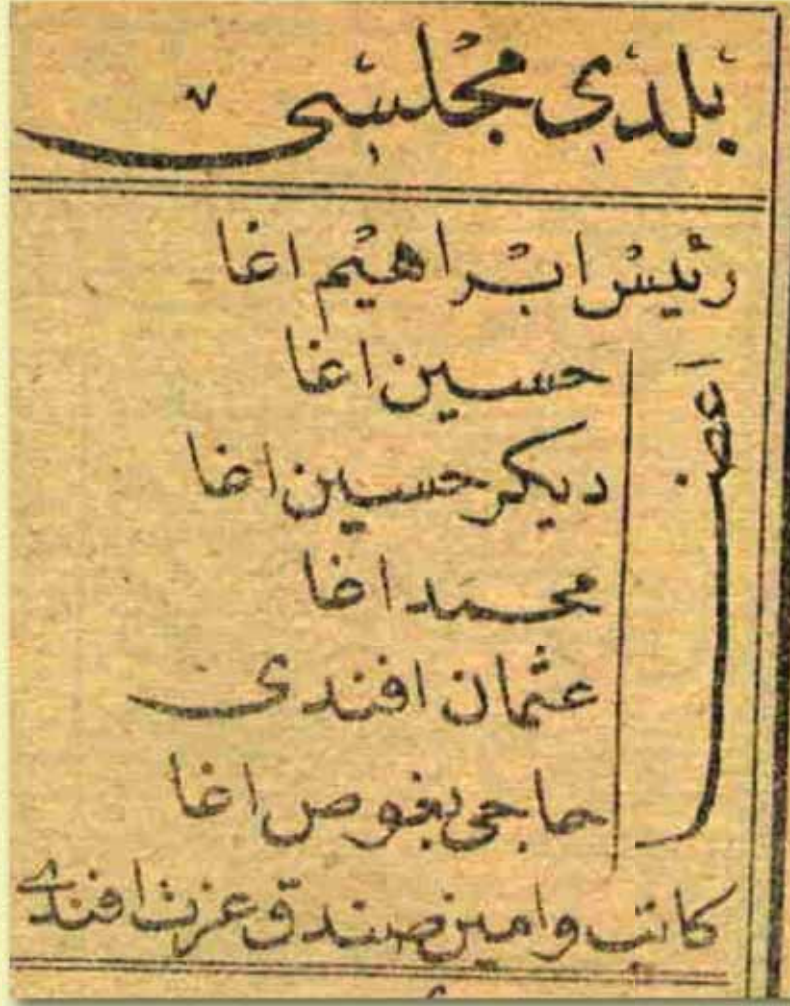 بلدی مجلسی
رئیس ابراهیم اغا
اعضا
حسین اغا
دیکر حسین اغا
محمد اغا
عثمان افندی
حاجی بغوص اغا
کاتب و امین صندق عزت افندی